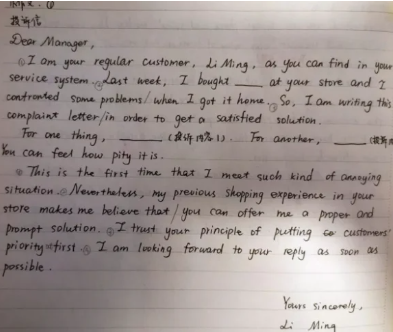 投诉信
Dear Manager,
①I am your regular customer, Li Ming, as you can find in your
service system. ②Last week, I bought ____ at your store and I
confronted some problems/when I got it home. ③So, I am writing this
complaint letter/in order to get a satisfied solution.
For one thing, ____ (投诉内容1). For another, ____ (投诉
You can feel how pity it is.
This is the first time that I meet such kind of annoying
situation. Nevertheless, my previous shopping experience in your
store makes me believe that/you can offer me a proper and
prompt solution. I trust your principle of putting customers'
priority at first. I am looking forward to your reply as soon as
possible.
Yours sincerely,
Li Ming